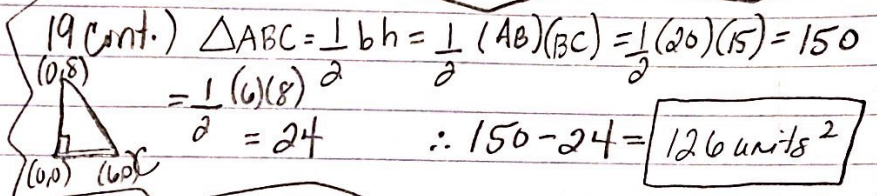 19 cont.) △ABC = 1/2 bh = 1/2 (AB)(BC) = 1/2 (20)(15) = 150
(0,8)
= 1/2 (6)(8)
= 24 ∴ 150 - 24 = 126 units²
(0,0) (6,0)